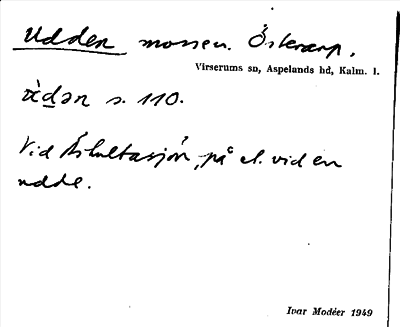 Udden mossen. Österarp.
Virserums sn, Aspelands hd, Kalm. l.
s. 110.
Vid Åhultasjön, på el. vid en
udde.
Ivar Modéer 1949